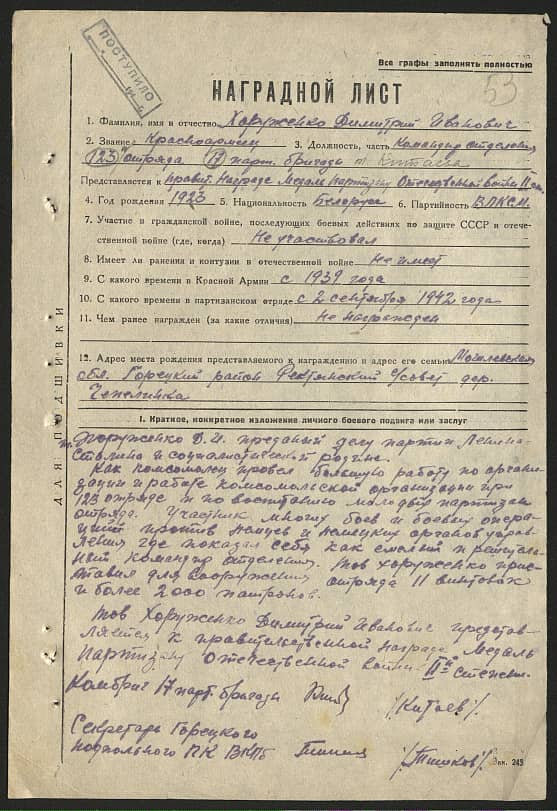 ПОСТУПИЛО
Все графы заполнять полностью
53
НАГРАДНОЙ ЛИСТ
1. Фамилия, имя и отчество Хоруженко Димитрий Иванович
2. Звание Красноармеец 3. Должность, часть Командир отделения
123 отряда 17 парт. бригады т. Китаева
Представляется к правит. Награде Медаль партизану Отечественной войны II степ.
4. Год рождения 1923 5. Национальность Белорус 6. Партийность ВЛКСМ
7. Участие в гражданской войне, последующих боевых действиях по защите СССР и отече-
ственной войне (где, когда) Не участвовал
8. Имеет ли ранения и контузии в отечественной войне не имеет
9. С какого времени в Красной Армии с 1939 года
10. С какого времени в партизанском отряде с 2 сентября 1942 года
11. Чем ранее награжден (за какие отличия) не награжден
12. Адрес места рождения представляемого к награждению и адрес его семьи Могилевская
обл. Горецкий район С/совет дер.
ДЛЯ ПОДШИВКИ
I. Краткое, конкретное изложение личного боевого подвига или заслуг
т. Хоруженко Д.И. преданый делу партии Ленина-
Сталина и социалистической родине.
Как комсомолец провел большую работу по органи-
зации и работе комсомольской организации при
123 отряде и по воспитанию молодых партизан
отряда. Участник многих боев и боевых опера-
ций против немцев и немецких органов управ-
ления где показал себя как смелый и решитель-
ный командир отделения. Тов Хоруженко прис-
тавил для вооружения отряда 11 винтовок
и более 2000 патронов.
Тов Хоруженко Димитрий Иванович представ-
ляется к правительственной награде Медаль
Партизану Отечественной войны II й степени.
Комбриг 17 парт. бригады /Китаев/.
Секретарь Горецкого
подпольного РК ВКПб /Тишков/.
Зак. 243